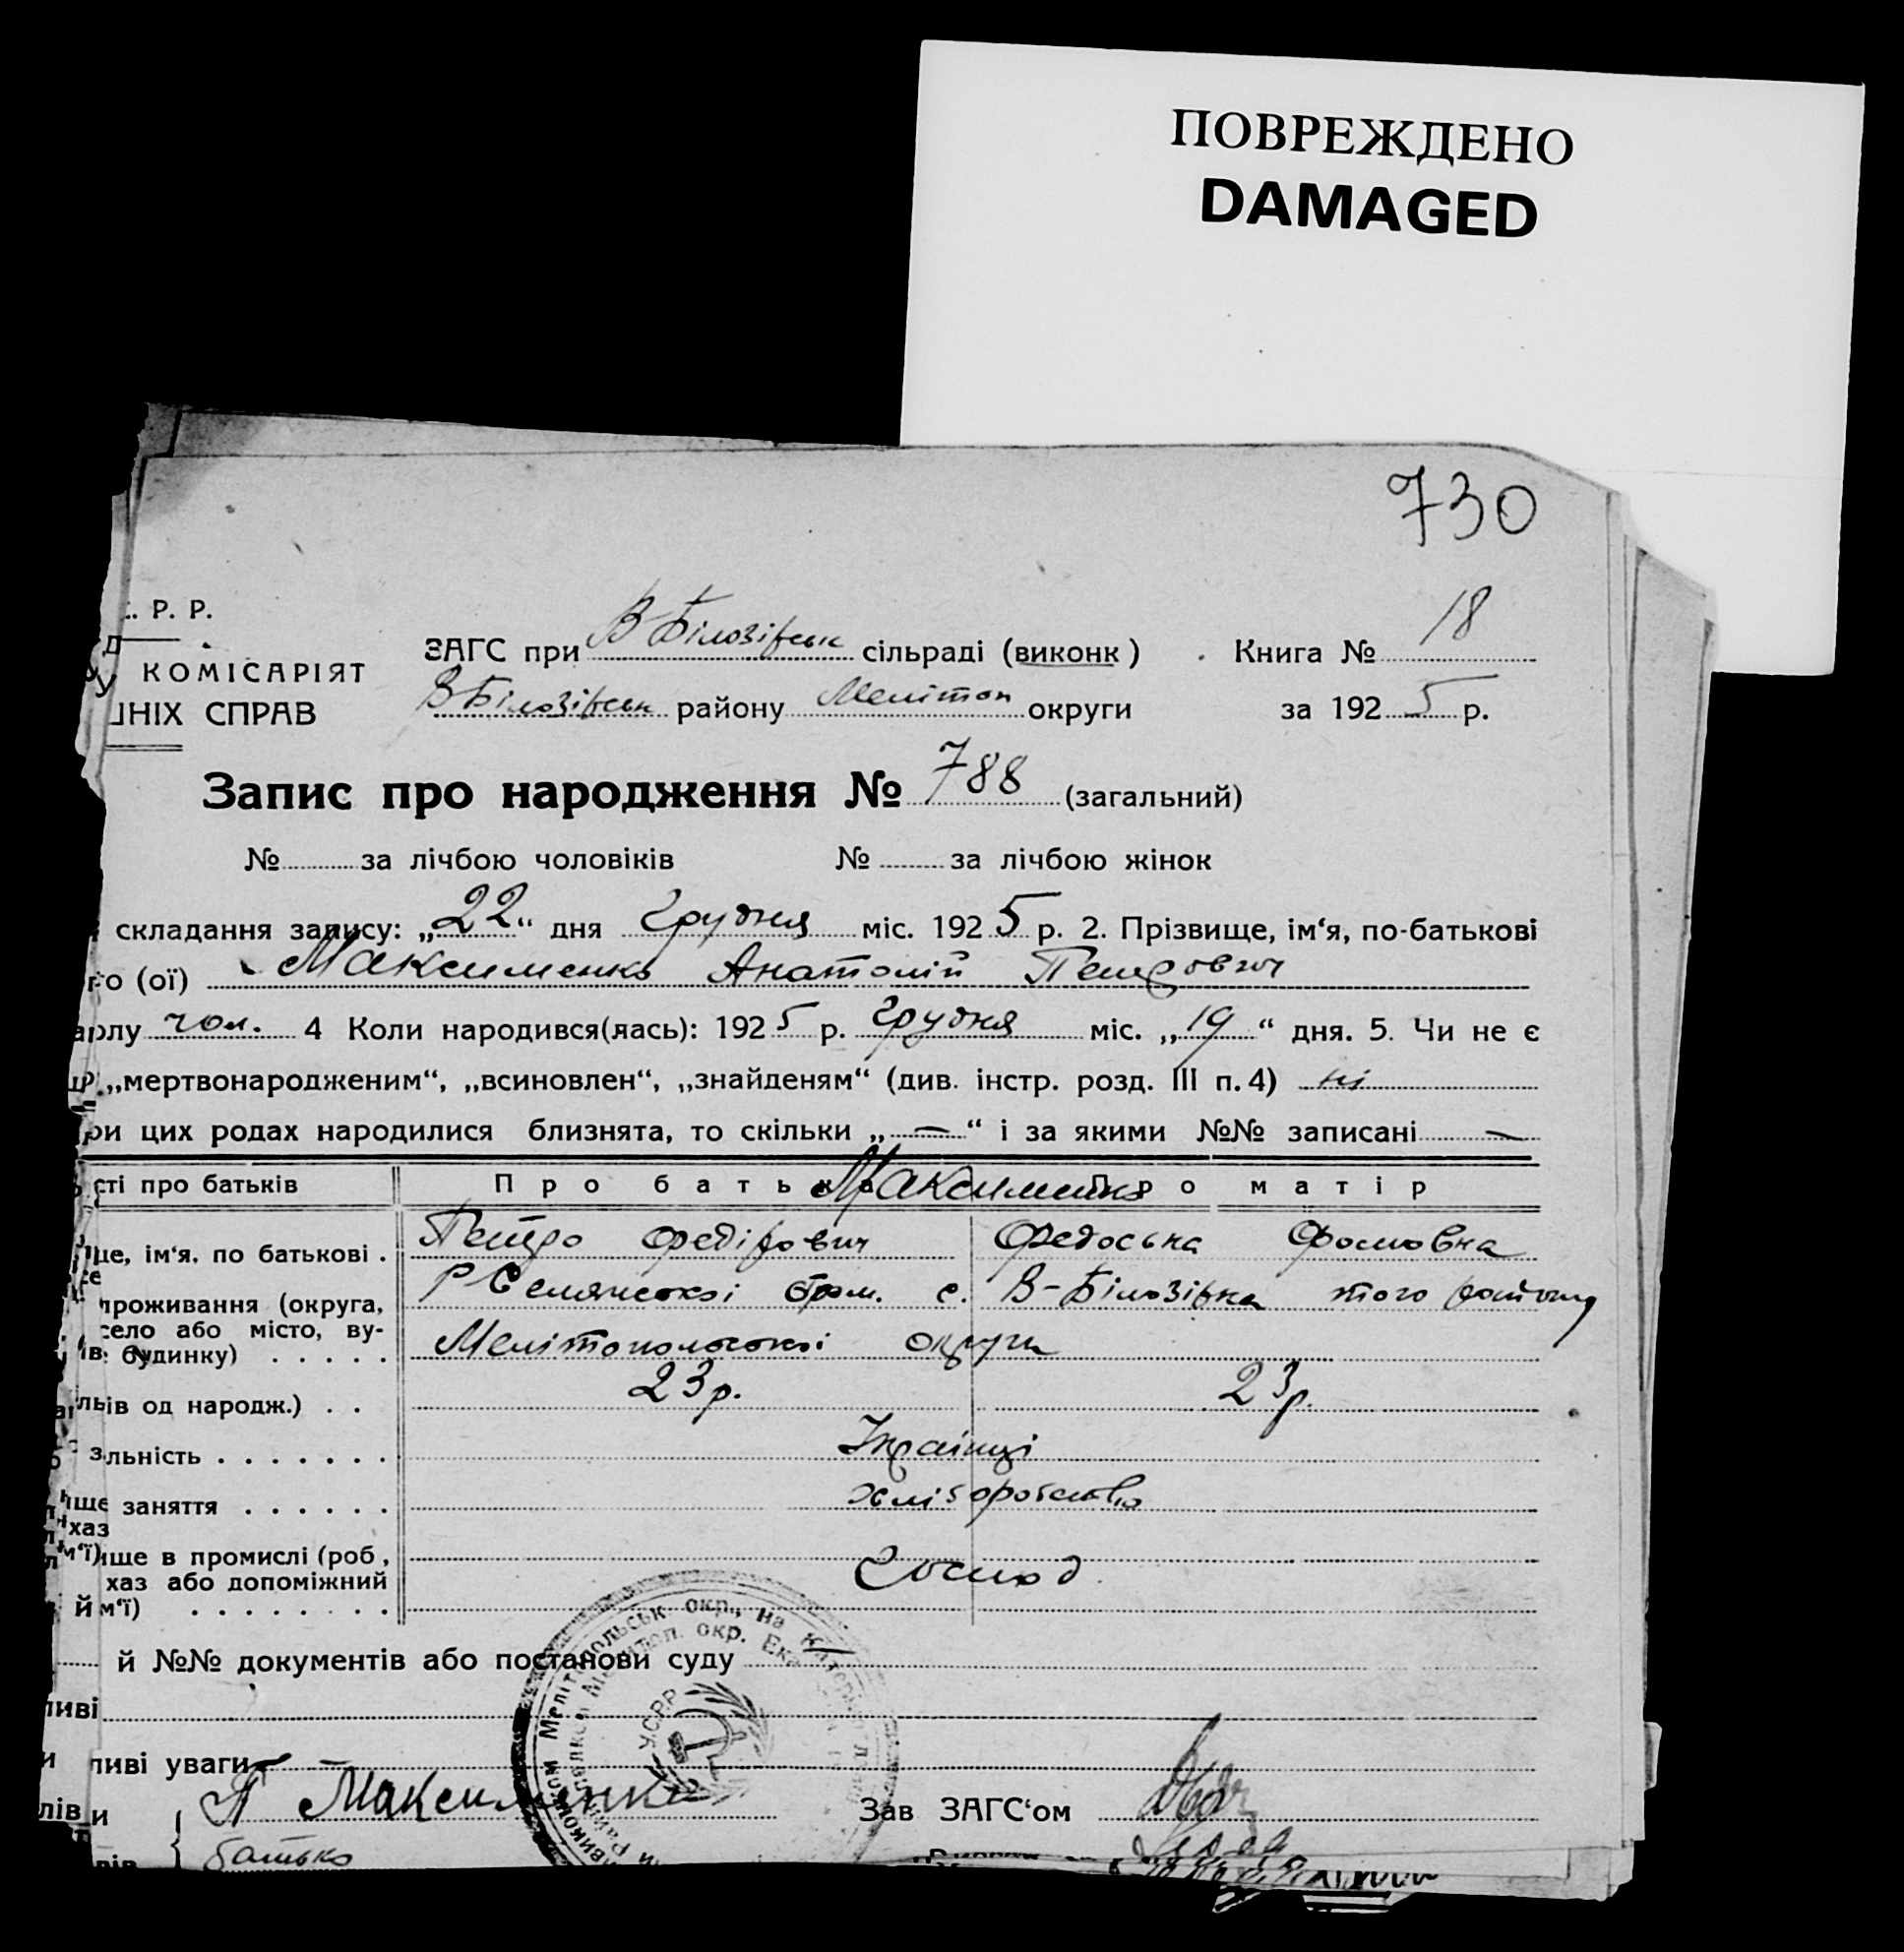 ПОВРЕЖДЕНО
DAMAGED
730
Р. Р.
КОМІСАРІЯТ
ЗАГС при В Білозірськ сільраді (виконк) Книга № 18
СПРАВ В Білозірськ району Мелітоп округи за 1925 р.
Запис про народження № 788 (загальний)
№ за лічбою чоловіків № за лічбою жінок
складання запису: „22“ дня Грудня міс. 1925 р. 2. Прізвище, ім‘я, по-батькові
го (ої) Максименко Анатолій Петрович
чол. 4 Коли народився(лась): 1925 р. Грудня міс. „19“ дня. 5. Чи не є
„мертвонародженим“, „всиновлен“, „знайденям“ (див. інстр. розд. III п. 4) ні
ри цих родах народилися близнята, то скільки „—“ і за якими №№ записані —
сті про батьків Про батька Максименко Про матір
ще, ім‘я, по батькові . Петро Федірович Федоська Фомовна
проживання (округа, Р Селянської Гром. с. В-Білозірка того району
село або місто, ву-
будинку) . . . . . Мелітопольської округи
ів од народж.) . . 23 р. 23 р.
льність . . . . . . . Українці
заняття . . . . . . хліборобство
ище в промислі (роб,
хаз або допоміжний Господ
м‘ї) . . . . . . . .
й №№ документів або постанови суду
ливі уваги
П Максименко Зав ЗАГС‘ом
батько
У.С.Р.Р.